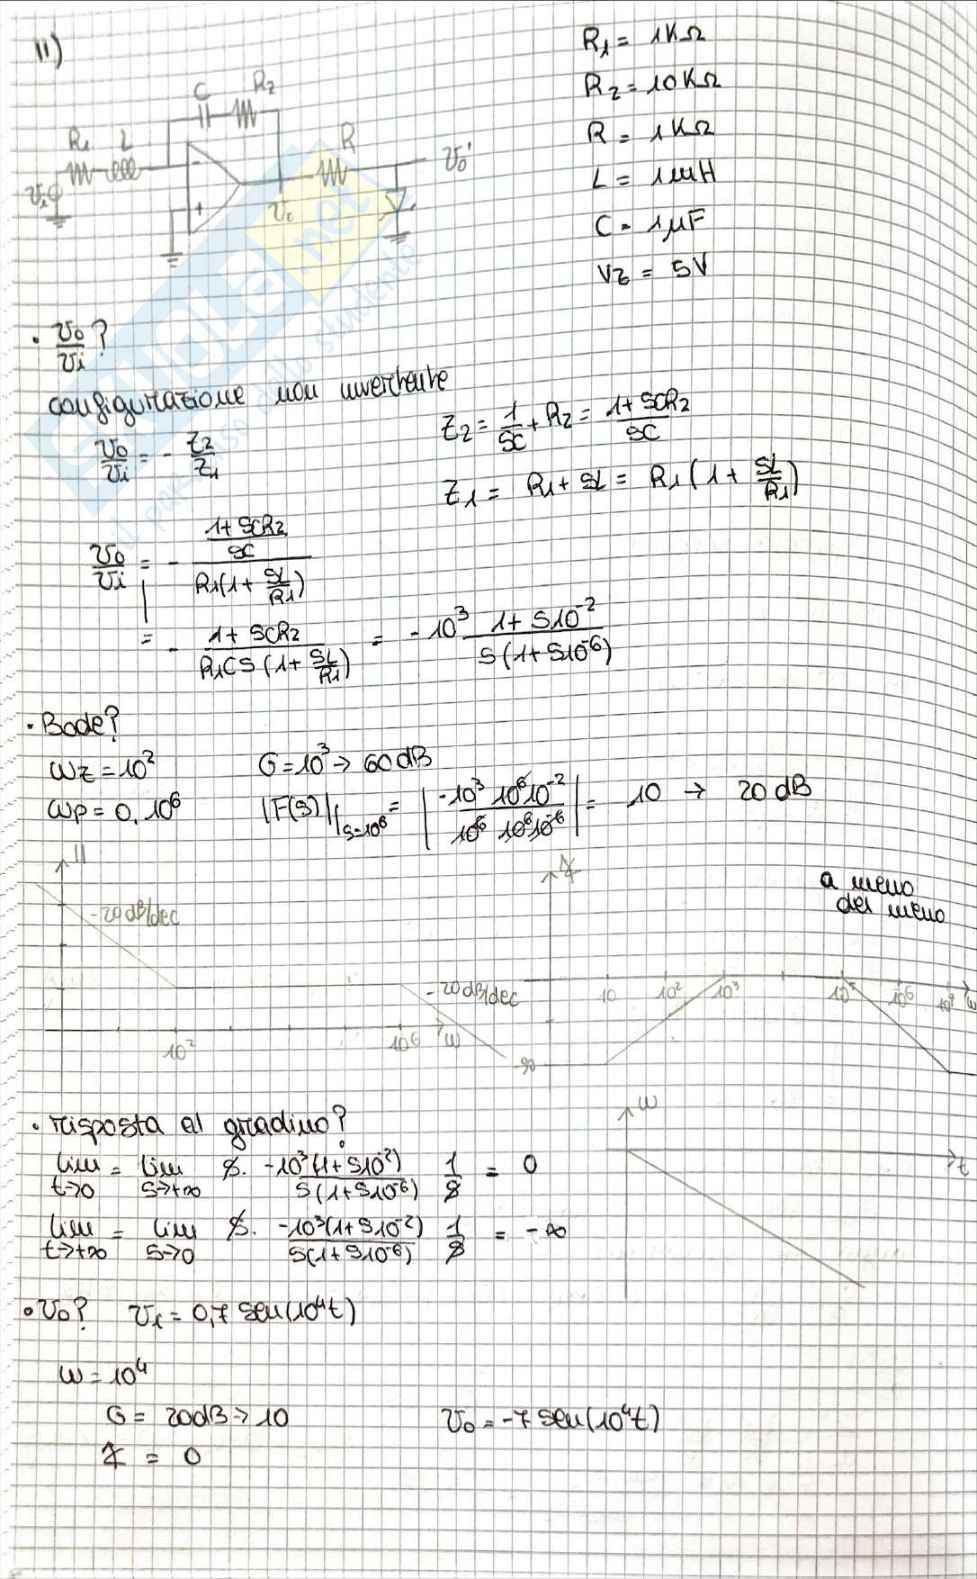 11)
R1 = 1KΩ
R2 = 10KΩ
R = 1KΩ
L = 1mH
C = 1μF
VZ = 5V
C R2
R1 L R
Vi Vo Vo'
- +
• Vo/Vi ?
configurazione non invertente
Vo/Vi = - Z2/Z1
Z2 = 1/SC + R2 = (1+SCR2)/SC
Z1 = R1 + SL = R1 (1 + SL/R1)
Vo/Vi = - ((1+SCR2)/SC) / (R1(1+ SL/R1))
= - (1+SCR2)/(R1CS(1+ SL/R1)) = -10³ (1+S10⁻²)/(S(1+S10⁻⁶))
• Bode?
ωz = 10² G = 10³ → 60dB
ωp = 0, 10⁶ |F(s)| |s=10⁶ = | -10³ 10⁶ 10⁻² / 10⁶ 10⁶ 10⁻⁶ | = 10 → 20 dB
a meno
del meno
||
-20dB/dec
-20dB/dec
10² 10⁶ ω
∡
10 10² 10³ 10⁵ 10⁶ ω
-90
• risposta al gradino?
lim t→0 = lim s→+∞ S · -10³(1+S10⁻²)/(S(1+S10⁻⁶)) 1/S = 0
lim t→+∞ = lim s→0 S · -10³(1+S10⁻²)/(S(1+S10⁻⁶)) 1/S = -∞
ω
t
• Vo? Vi = 0,7 sen(10⁴t)
ω = 10⁴
G = 20dB → 10 Vo = -7 sen(10⁴t)
∡ = 0